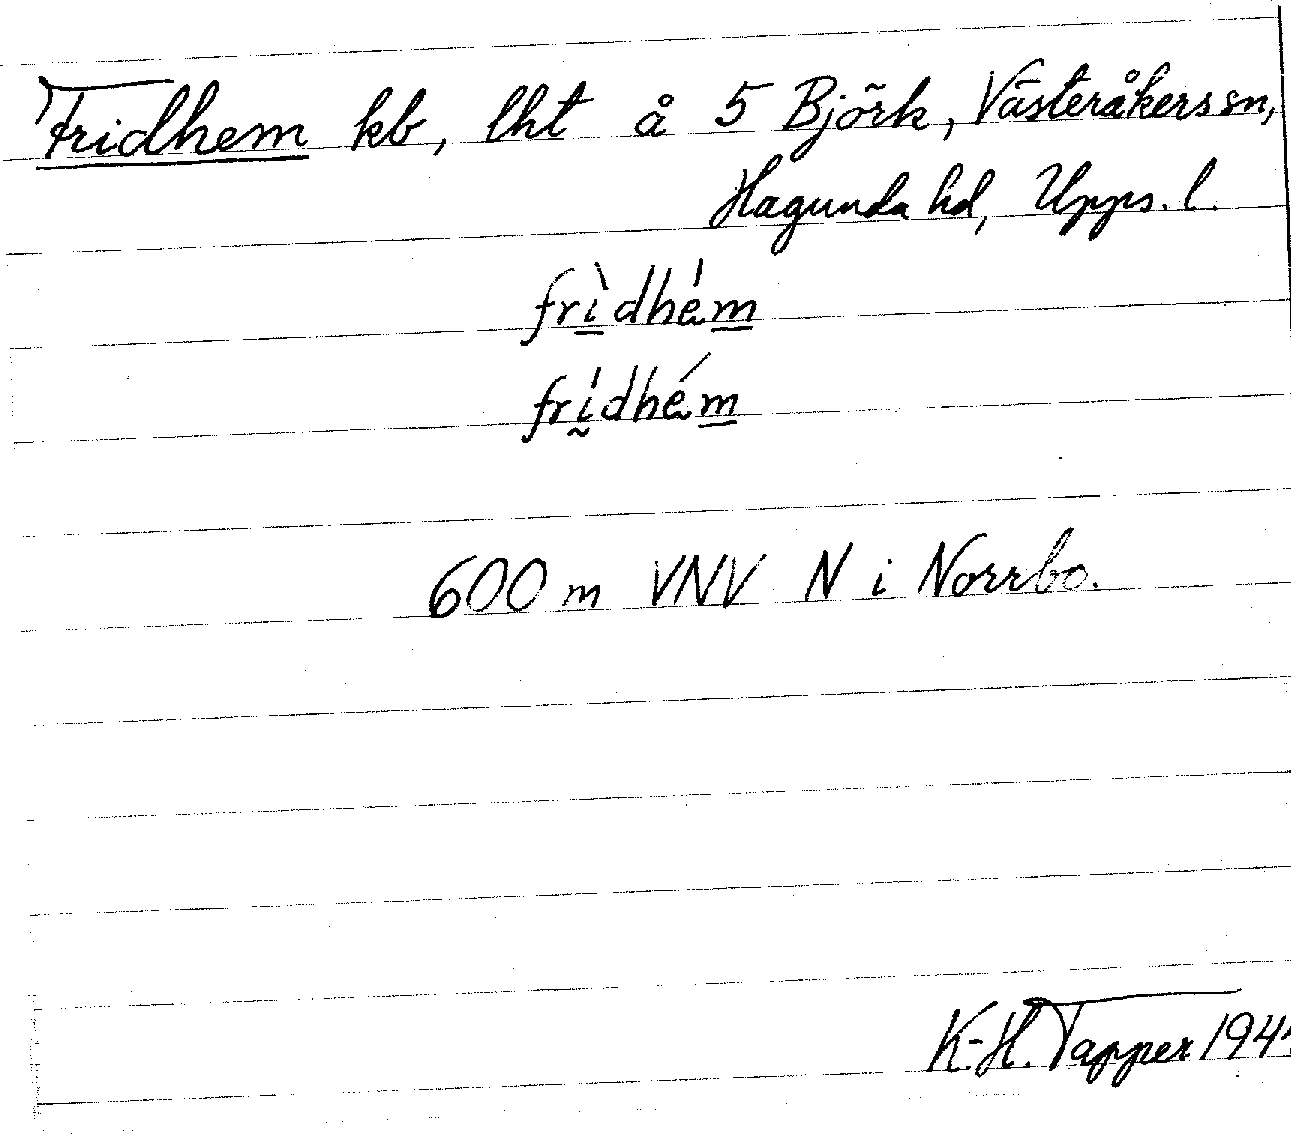 Fridhem kb, lht å 5 Björk, Västeråkers sn,
Hagunda hd, Upps. l.
frìdhém
frídhém
600 m VNV N i Norrbo.
K-H. Tapper 194